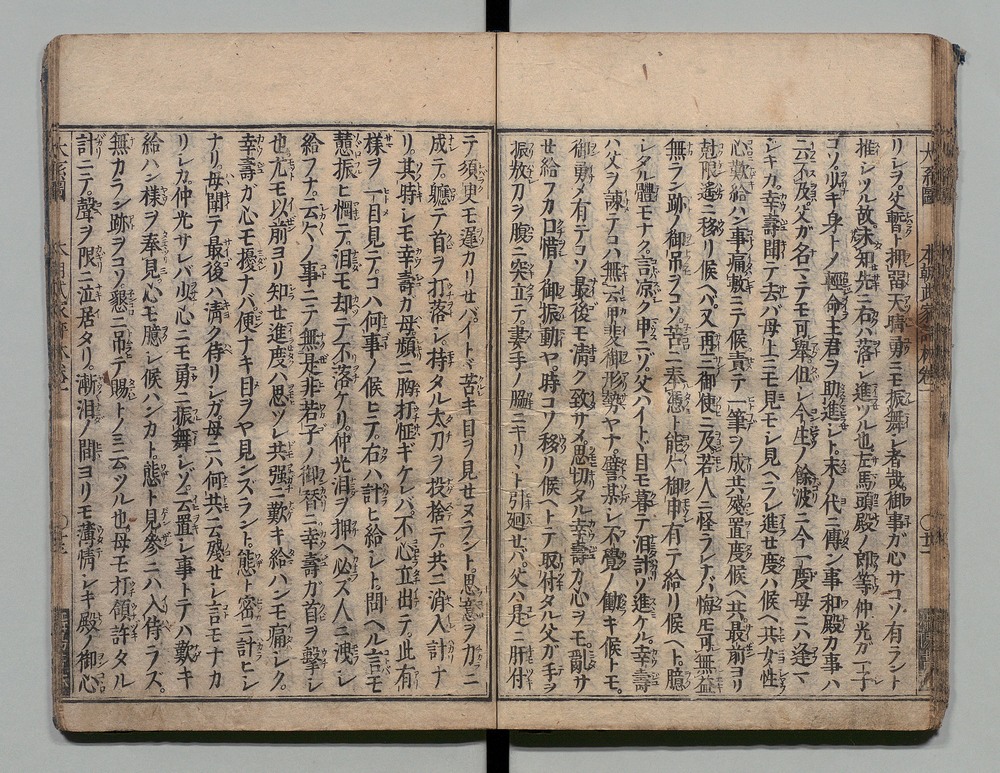 リレヲ父暫ト捫留天晴勇ニモ振舞シ者哉御事ガ心サコソ有ラント
推シツル故未知先ニ右ハ落シ進ツル也左馬頭殿ノ郎等仲光ガ一子
コソ少キ身トノ輕命主君ヲ助進シト末ノ代ニ傳ン事和殿カ事ハ
云ニ不及父ガ名ニテモ可擧但シ今生ノ餘波ニ今一度母ニハ逢マ
シキカ幸壽聞テ去バ母上ニモ見モシ見ヘラレ進セ度ハ候ヘ共女性
心歎給ハン事痛敷ニテ候責テ一筆ヲ成共殘置度候ヘ共最前ヨリ
尅限遙ニ移リ候ヘバ又再ニ御使ニ及若人ニ怪ラレナバ悔トモ可無益
無ラン跡ノ御吊ヲコソ苦ニ奉憑ト能々御申有テ給リ候ヘト臆
シタル體モナク言凉ク申ニゾ父ハイトド目モ暮テ泪計ゾ進ケル幸壽
ハ父ヲ諫テコハ無云甲斐御形勢ヤナ譬某シ不覺ノ働キ候トモ
御勇メ有テコソ最後モ清ク致サメ思切タル幸壽カ心ヲモ亂サ
セ給フカ口惜ノ御振動ヤ時コソ移リ候ヘトテ取付タル父ガ手ヲ
振放刀ヲ腹ニ突立テ妻手ノ脇ニキリヽト引廻セバ父ハ是ニ肝付
テ須臾モ遲カリセバイトヽ苦キ目ヲ見セヌラント思意ヲカニ
成テ軈テ首ヲ打落シ持タル太刀ヲ投捨テ共ニ消入計ナ
リ其時シモ幸壽カ母頻ニ胸打恠ギケレバ不心立出テ此有
樣ヲ一目見ニテコハ何事ノ候ヒテ右ハ計ヒ給シト問ヘル言モ
慧振ヒ惘ニテ泪モ却テ不落ケリ仲光泪ヲ押ヘ必ズ人ニ洩シ
給フナ云々ノ事ニテ無是非若子ノ御替ニ幸壽ガ首ヲ擊シ
也尤モ以前ヨリ知セ進度ハ思ツレ共强ニ歎キ給ハンモ痛シク
幸壽ガ心モ擾ナバ便ナキ目ヲヤ見ンズラント態ト密ニ計ヒシ
ナリ母聞テ最後ハ清ク侍リシガ母ニハ何共云殘セシ言モナカ
リシカ仲光サレバ少心ニモ勇ニ振舞レゾ云置シ事トテハ歎キ
給ハン樣ヲ奉見心モ臆シ候ハンカト態ト見參ニハ入侍ラズ
無カラン跡ヲコソ懇ニ吊テ賜トノミ云ツル也母モ打領許タル
計ニテ聲ヲ限ニ泣居タリ漸泪ノ間ヨリモ薄情シキ殿ノ御心
大系圖
本朝武家評林卷